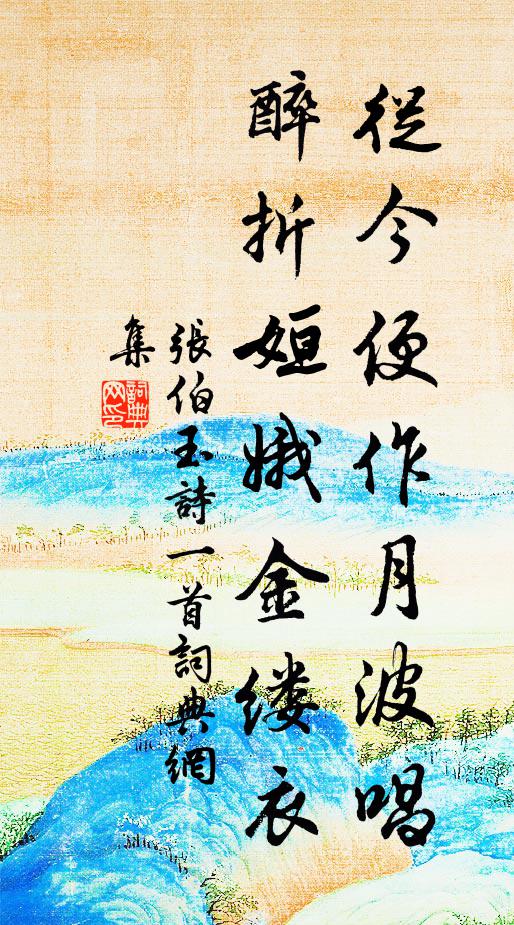 從今便作月波唱
醉折姮娥金缕衣
張伯玉詩一首詞典網
集
詞典
网印